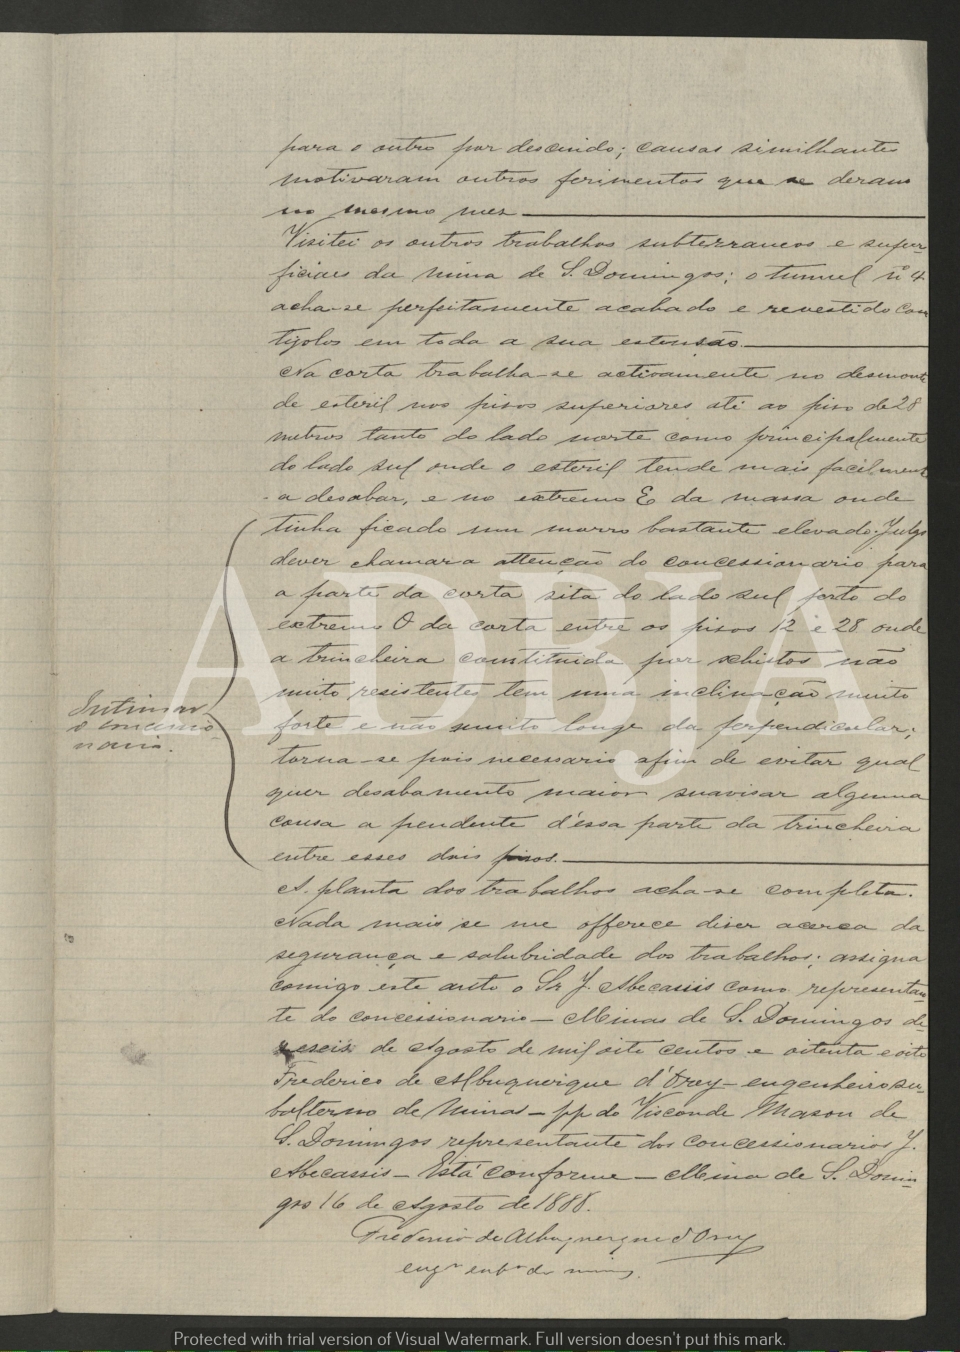 para o outro por descuido; causas similhantes
motivaram outros ferimentos que se deram
no mesmo mez.
Visitei os outros trabalhos subterraneos e super-
ficiaes da mina de S. Domingos; o tunnel nº 4
acha-se perfeitamente acabado e revestido com
tijolos em toda a sua extensão.
Na corta trabalha-se activamente no desmonte
de esteril nos pisos superiores até ao piso de 28
metros tanto do lado norte como principalmente
do lado sul onde o esteril tende mais facilmente
a desabar, e no extremo E da massa onde
tinha ficado um murro bastante elevado. Julgo
dever chamar a attenção do concessionario para
a parte da corta sita do lado sul perto do
extremo O da corta entre os pisos 12 e 28 onde
a trincheira constituida por schistos não
muito resistentes tem uma inclinação muito
forte e não muito longe da perpendicular;
Intimar
o concessio-
nario.
torna-se pois necessario afim de evitar qual
quer desabamento maior suavisar alguma
cousa a pendente d'essa parte da trincheira
entre esses dois pisos.
A planta dos trabalhos acha-se completa.
Nada mais se me offerece dizer acerca da
segurança e salubridade dos trabalhos; assigna
comigo este auto o Sr J. Abecassis como representan-
te do concessionario — Minas de S. Domingos de-
zeseis de Agosto de mil oito centos e oitenta e oito
Frederico de Albuquerque d'Orey — engenheiro su-
balterno de Minas — pp do Visconde Mason de
S. Domingos representante dos concessionarios J.
Abecassis — Está conforme — Mina de S. Domin-
gos 16 de Agosto de 1888.
Frederico de Albuquerque d'Orey
engº subº de minas.
ADBJA
Protected with trial version of Visual Watermark. Full version doesn't put this mark.